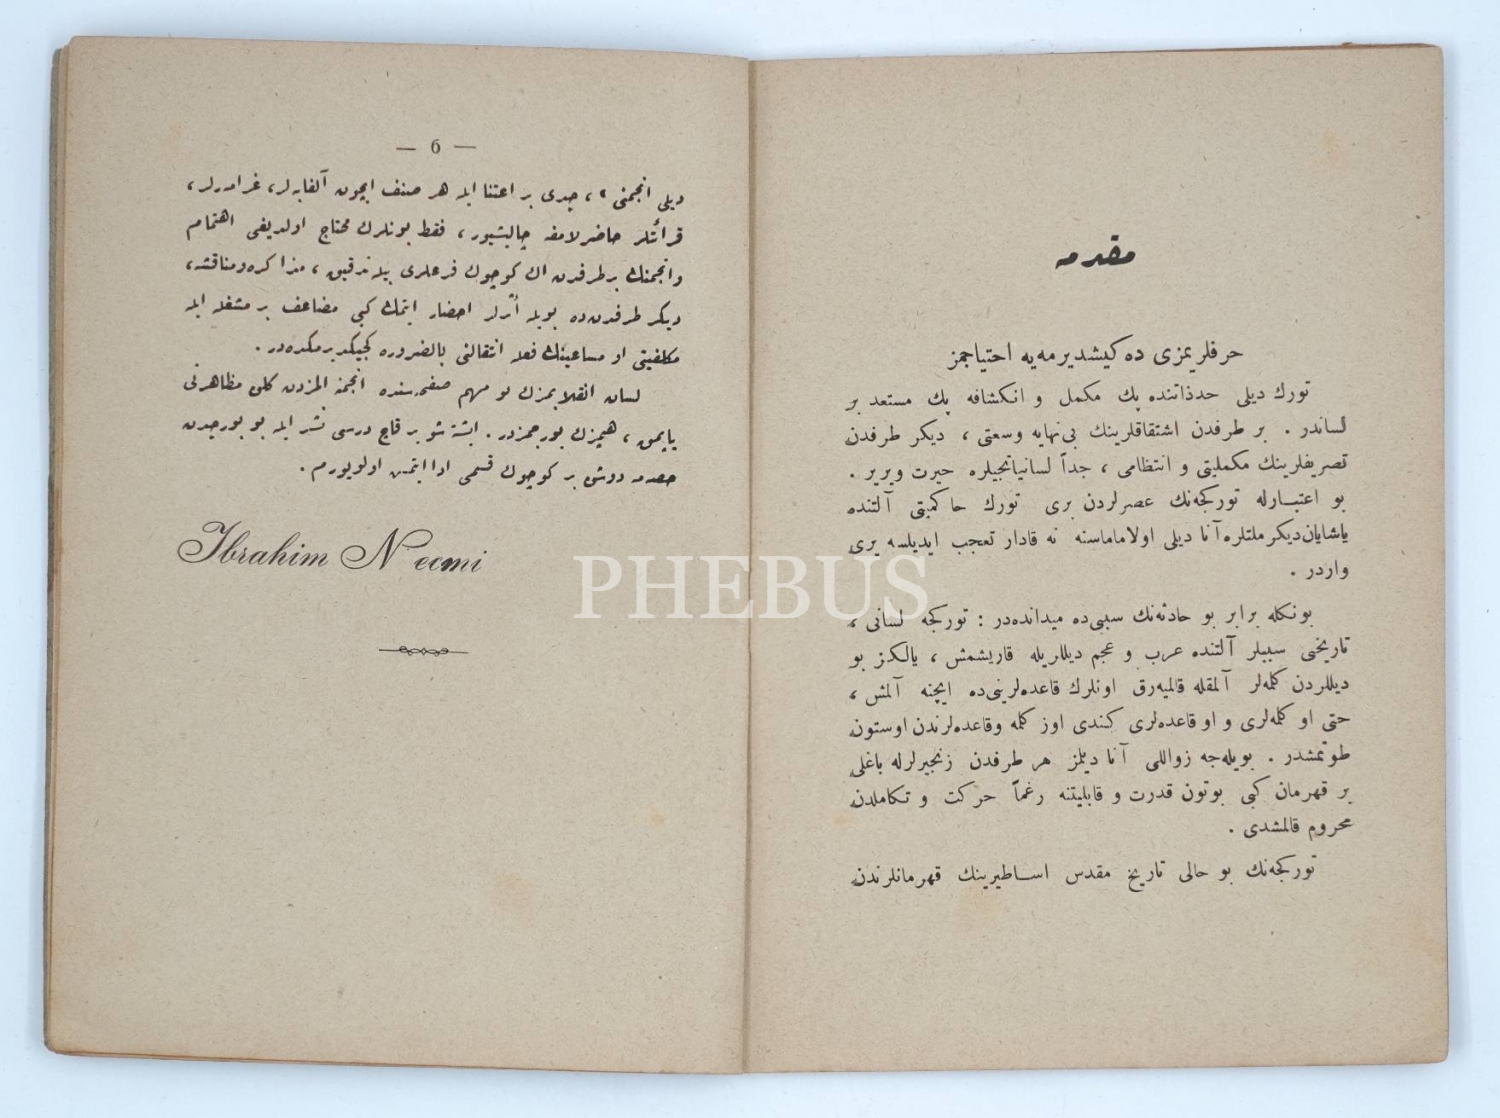 — 6 —
ديلی انجمنی » ، جدی بر اعتنا ايله هر صنف ايچون آلفابه لر ، غرامرلر ،
قرائتلر حاضرلامغه چاليشيور ، فقط بونلرك محتاج اولديغی اهتمام
وانجمنك بر طرفدن اك كوچوك فرعلری بيله تدقيق ، مذاكره ومناقشه ،
ديكر طرفدن ده بويله اثرلر احضار ايتمك كبی مضاعف بر مشغله ايله
مكلفيتی او مساعينك فعله انتقالنی بالضروره كجيكديرمكده در .
لسان انقلابمزك بو مهم صفحه سنده انجمنه المزدن كلن مظاهرتی
يايمق ، هپمزك بورجمزدر . ايشته شو بر قاچ درسی نشر ايله بو بورجدن
حصه مه دوشن بر كوچوك قسمی ادا ايتمش اولويورم .
Ibrahim Necmi
مقدمه
حرفلريمزی ده كيشديرمه يه احتياجمز
تورك ديلی حدذاتنده پك مكمل و انكشافه پك مستعد بر
لساندر . بر طرفدن اشتقاقلرينك بی نهايه وسعتی ، ديكر طرفدن
تصريفلرينك مكمليتی و انتظامی ، جداً لسانياتجيلره حيرت ويرير .
بو اعتبارله توركجه نك عصرلردن بری تورك حاكميتی آلتنده
ياشايان ديكر ملتلره آنا ديلی اولاماماسنه نه قادار تعجب ايديلسه يری
واردر .
بونكله برابر بو حادثه نك سببی ده ميدانده در : توركجه لسانی ،
تاريخی سببلر آلتنده عرب و عجم ديللريله قاريشمش ، يالكز بو
ديللردن كلمه لر آلمقله قالميه رق اونلرك قاعده لرينی ده ايچنه آلمش ،
حتی او كلمه لری و او قاعده لری كندی اوز كلمه وقاعده لرندن اوستون
طوتمشدر . بويله جه زواللی آنا ديلمز هر طرفدن زنجيرلرله باغلی
بر قهرمان كبی بوتون قدرت و قابليتنه رغماً حركت و تكاملدن
محروم قالمشدی .
توركجه نك بو حالی تاريخ مقدس اساطيرينك قهرمانلرندن
PHEBUS